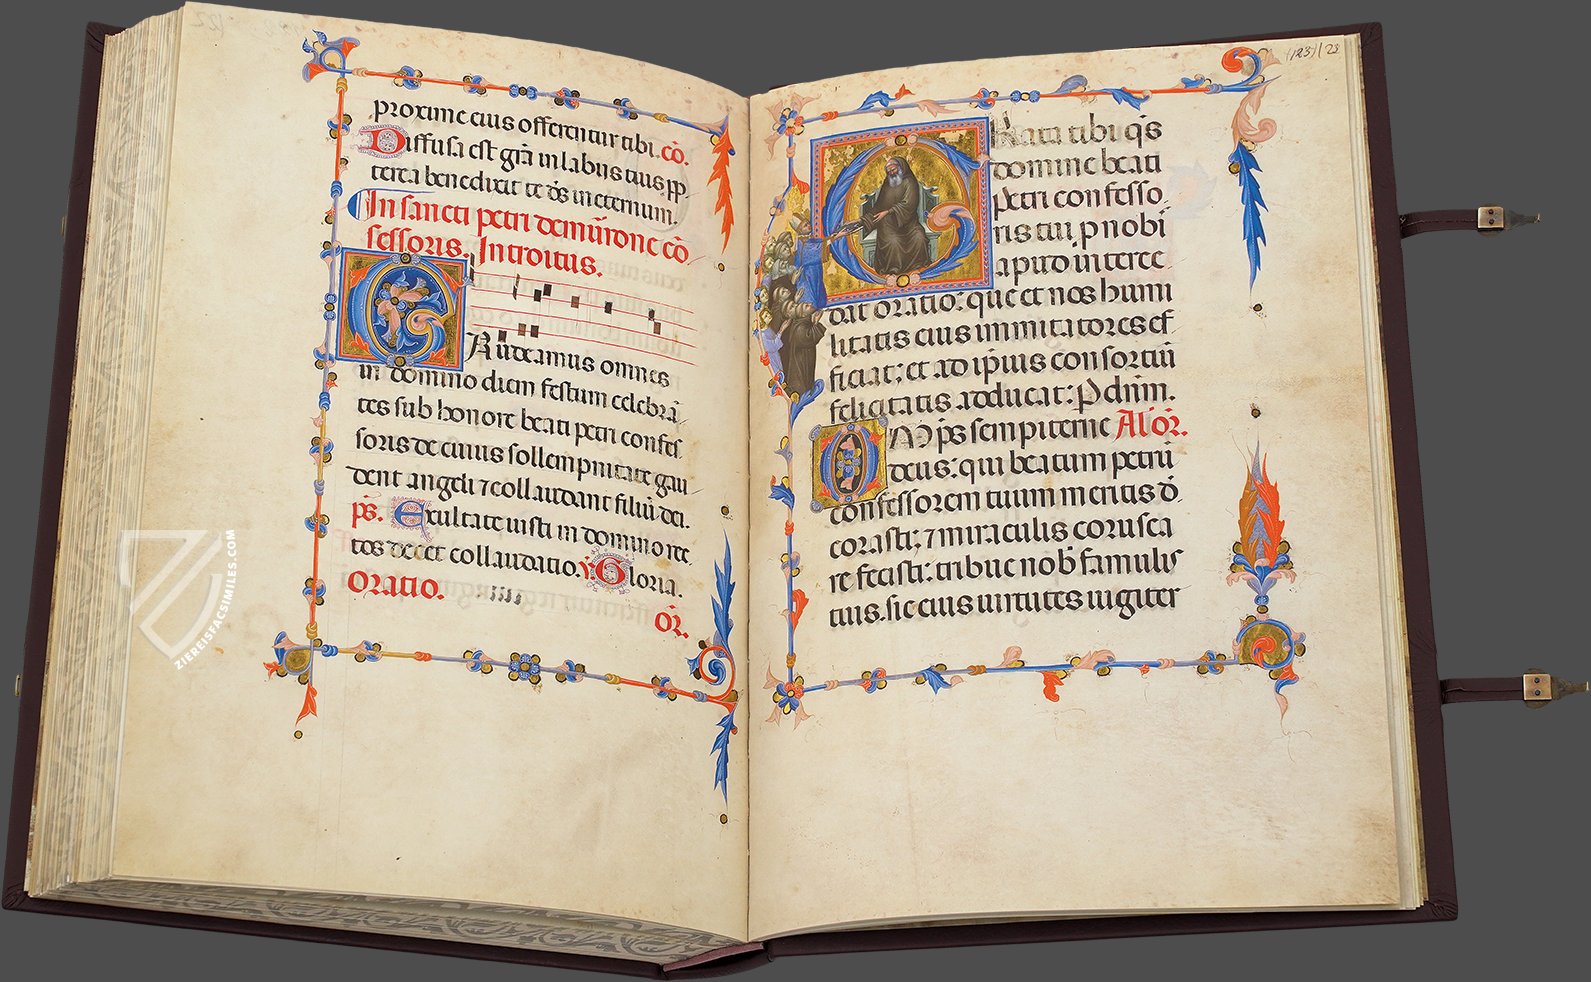 proxime eius offerentur tibi. cō.
Diffusa est grā in labijs tuis pp
terea benedixit te ds in eternum.
In sancti petri de mūrone cō
fessoris. Introitus.
GAudeamus omnes
in domino diem festum celebrā
tes sub honore beati petri confes
soris de cuius sollempnitate gau
dent angeli ⁊ collaudant filiū dei.
ps. Exultate iusti in domino rec
tos decet collaudatio. V. Gloria.
Oratio.
or̄.
123 123
GRata tibi q̄s
domine beati
petri confesso
ris tui, p nobī
apłio interce
dat oratio: que et nos humi
litatis eius immitatores ef
ficiat; et ad ip̄ius consortiū
felicitatis adducat: P dn̄m.
OMp̄s sempiterne Al. or̄.
deus: qui beatum petrū
confessorem tuum meritis d
corasti; ⁊ miraculis corusca
re fecisti: tribue nob̄ famulis
tuis. sic eius uirtutes iugiter
ZIEREISFACSIMILES.COM